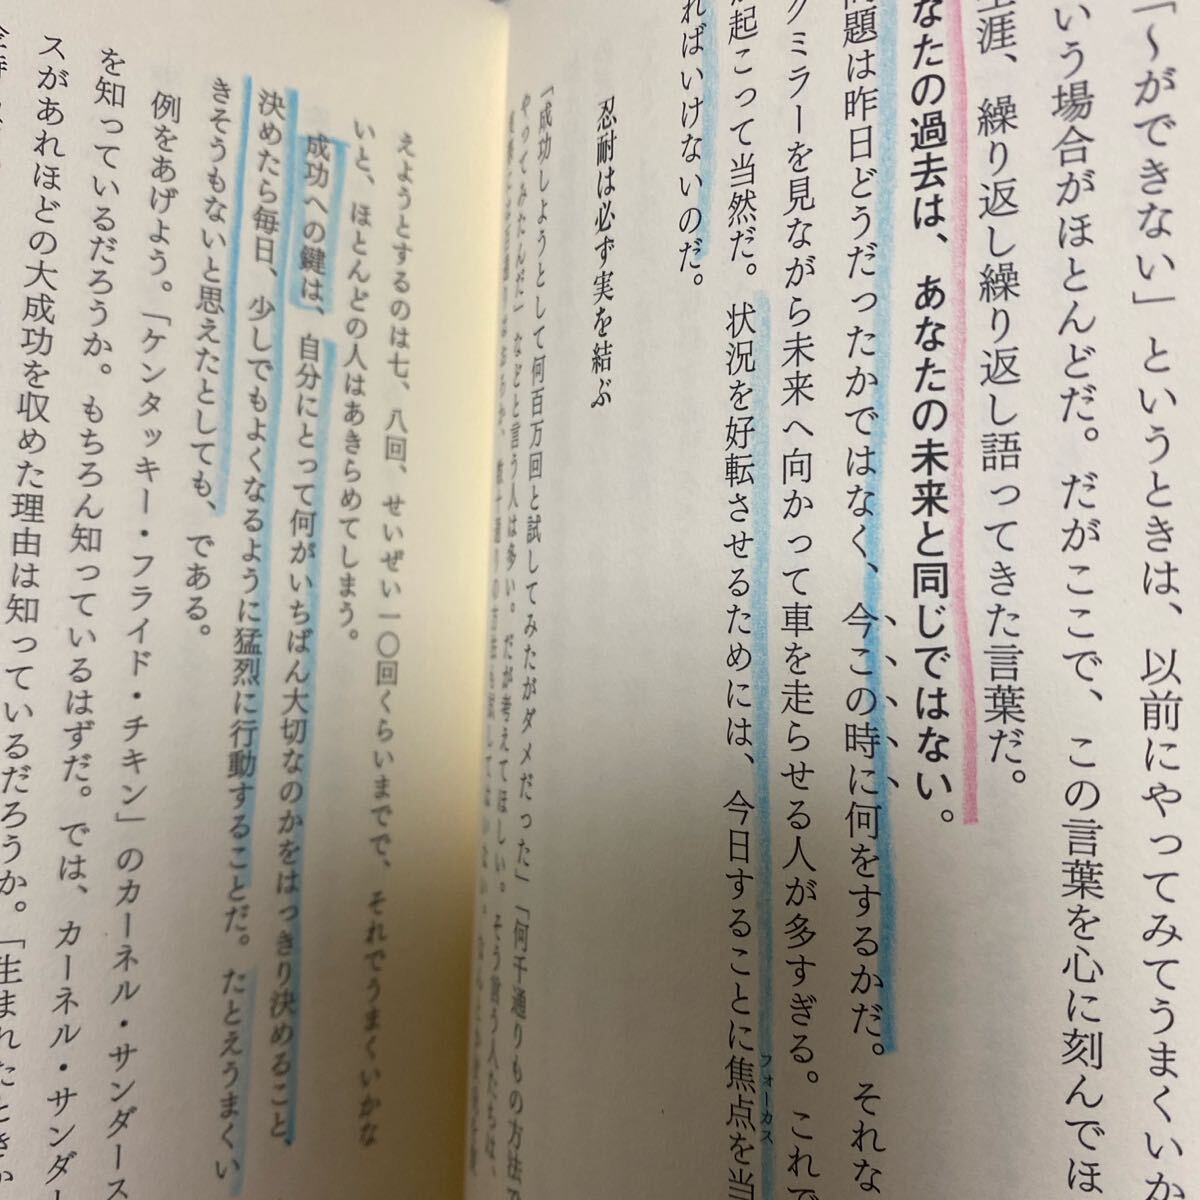 「～ができない」というときは、以前にやってみてうまくいか
いう場合がほとんどだ。だがここで、この言葉を心に刻んでほ
生涯、繰り返し繰り返し語ってきた言葉だ。
なたの過去は、あなたの未来と同じではない。
問題は昨日どうだったかではなく、今この時に何をするかだ。それな
クミラーを見ながら未来へ向かって車を走らせる人が多すぎる。これで
起こって当然だ。状況を好転させるためには、今日することに焦点を当
フォーカス
ればいけないのだ。
忍耐は必ず実を結ぶ
「成功しようとして何百万回と試してみたがダメだった」「何千通りもの方法で
やってみたんだ」などと言う人は多い。だが考えてほしい。そう言う人たちは、
えようとするのは七、八回、せいぜい一〇回くらいまでで、それでうまくいかな
いと、ほとんどの人はあきらめてしまう。
成功への鍵は、自分にとって何がいちばん大切なのかをはっきり決めること、
決めたら毎日、少しでもよくなるように猛烈に行動することだ。たとえうまくい
きそうもないと思えたとしても、である。
例をあげよう。「ケンタッキー・フライド・チキン」のカーネル・サンダース
を知っているだろうか。もちろん知っているはずだ。では、カーネル・サンダー
スがあれほどの大成功を収めた理由は知っているだろうか。「生まれたときか